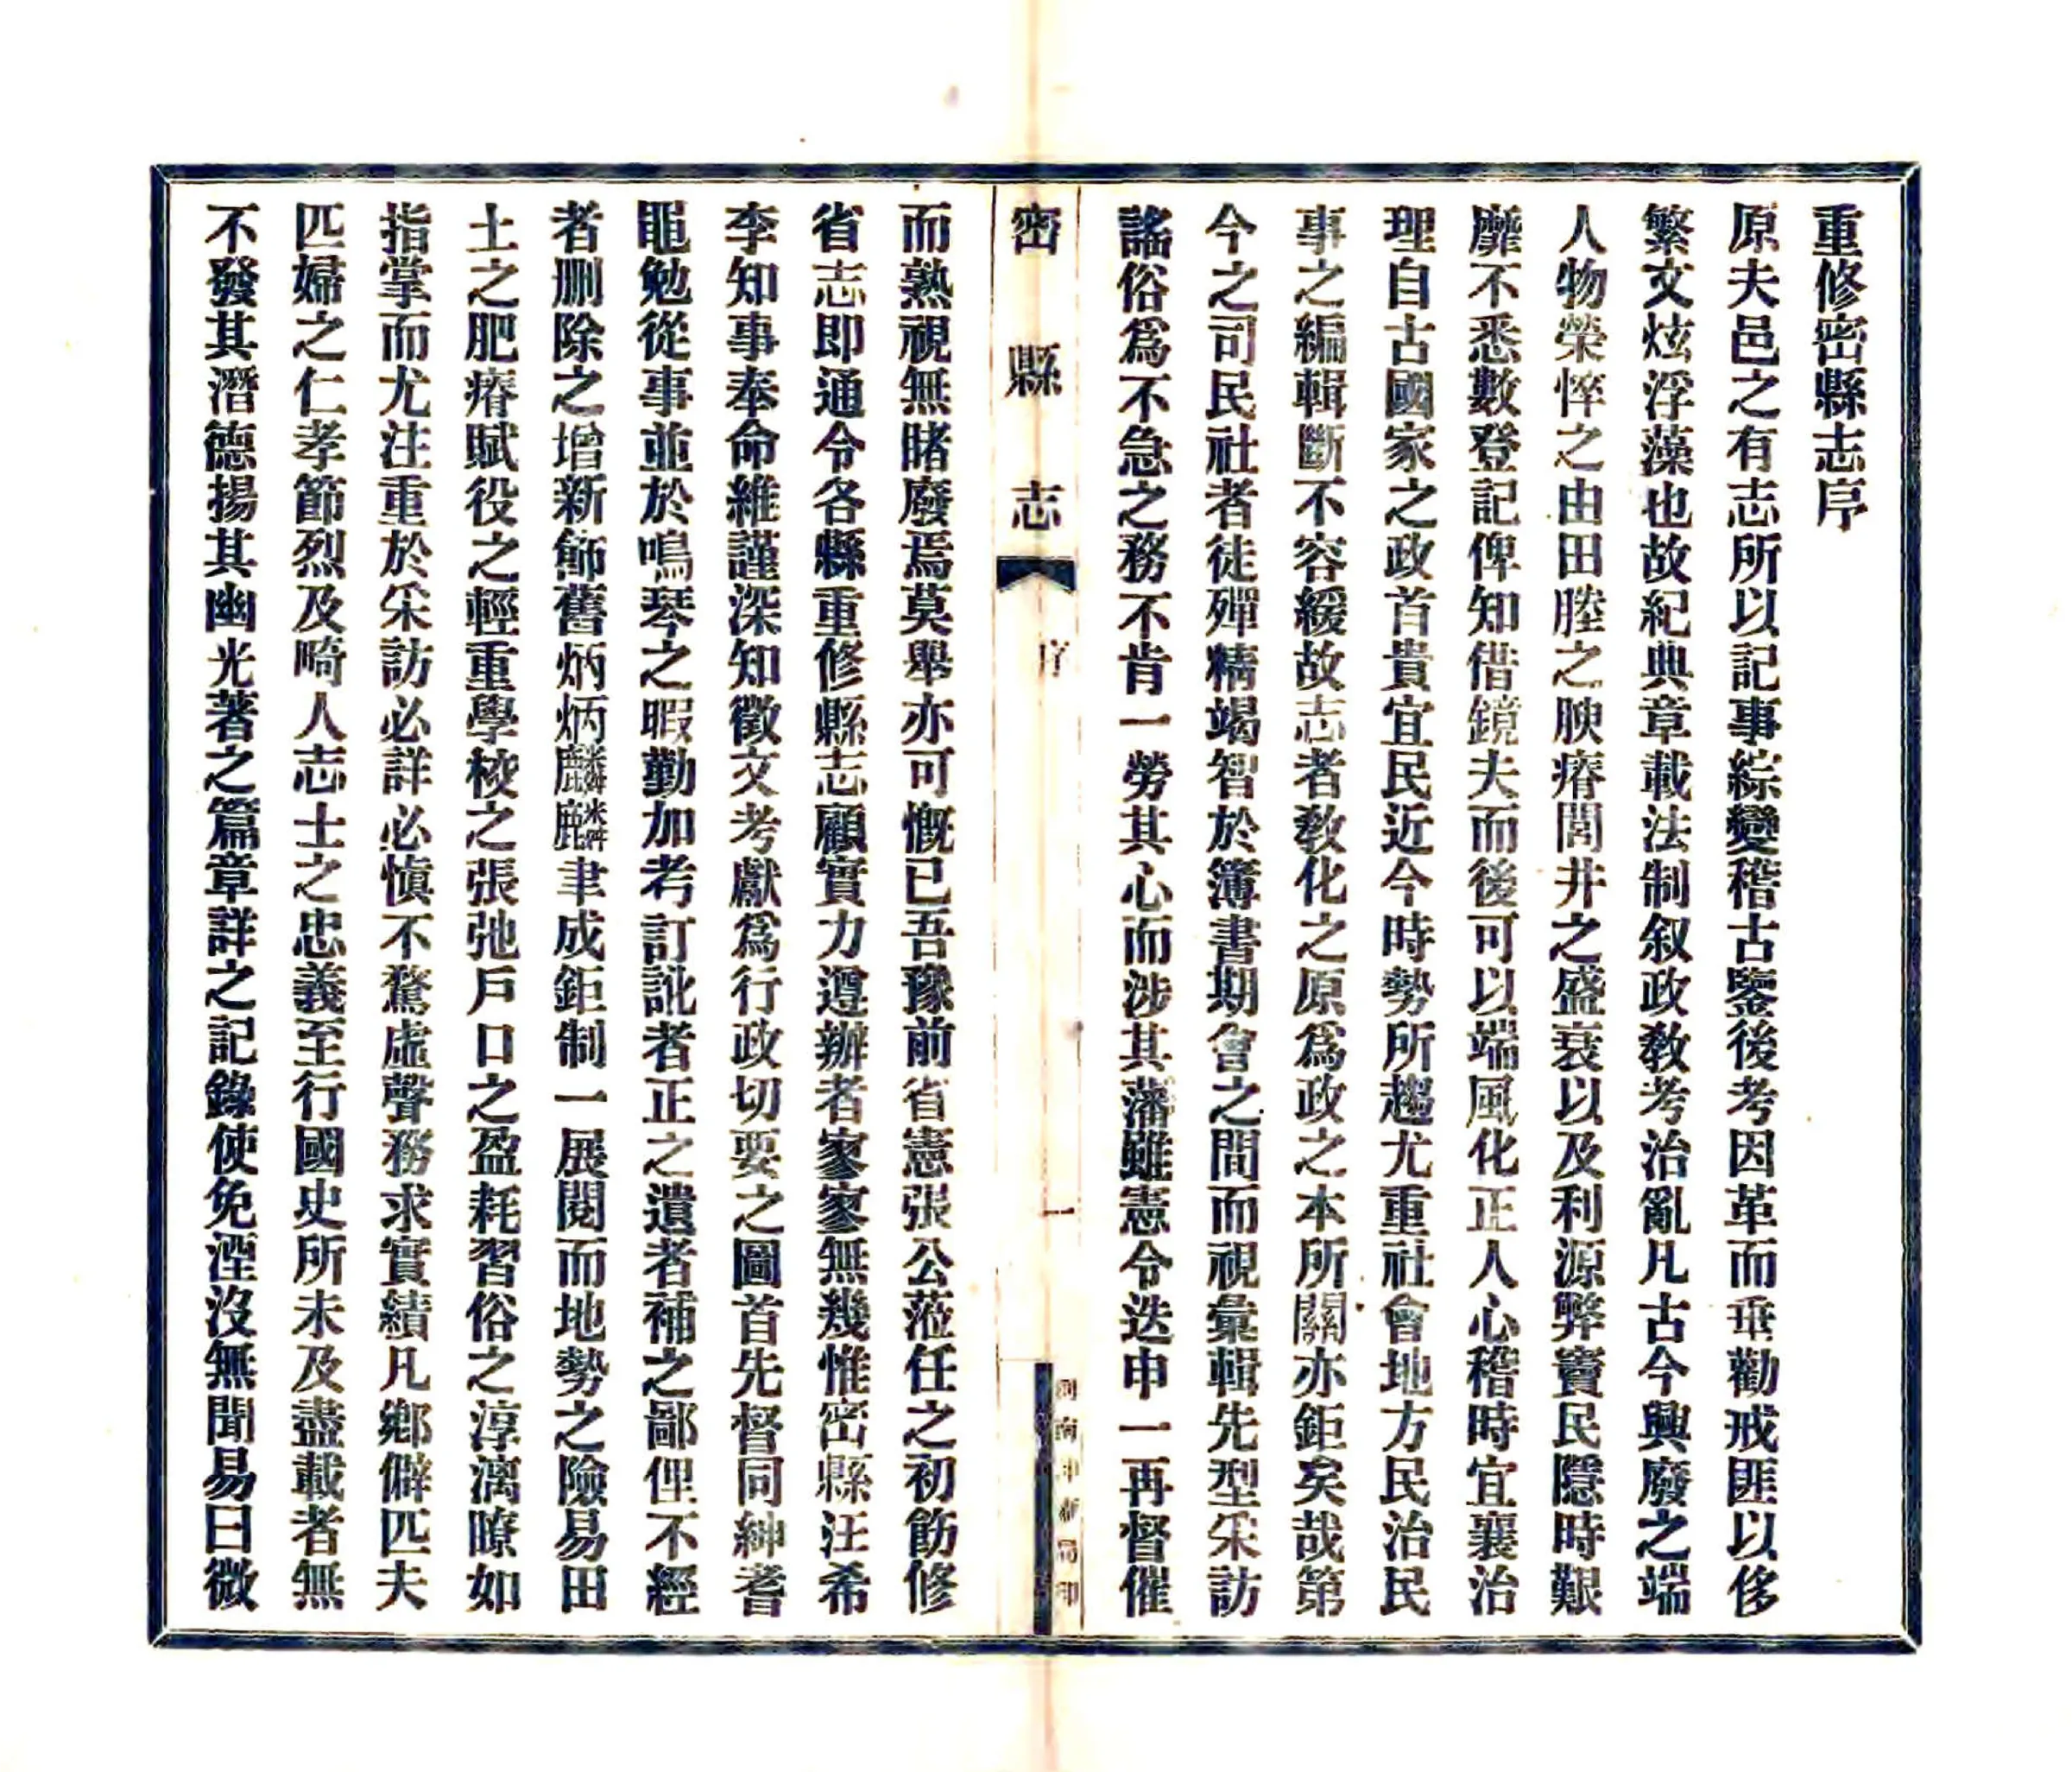 重修密縣志序
原夫邑之有志所以記事綜變稽古鑒後考因革而垂勸戒匪以侈
繁文炫浮藻也故紀典章載法制叙政教考治亂凡古今興廢之端
人物榮悴之由田塍之腴瘠閭井之盛衰以及利源弊竇民隱時艱
靡不悉數登記俾知借鏡夫而後可以端風化正人心稽時宜襄治
理自古國家之政首貴宜民近今時勢所趨尤重社會地方民治民
事之編輯斷不容緩故志者敎化之原爲政之本所關亦鉅矣哉第
今之司民社者徒殫精竭智於簿書期會之間而視彙輯先型采訪
謠俗爲不急之務不肯一勞其心而涉其藩雖憲令迭申一再督催
密縣志
序
一
河南中新局印
而熟視無睹廢焉莫舉亦可慨已吾豫前省憲張公蒞任之初飭修
省志即通令各縣重修縣志顧實力遵辦者寥寥無幾惟密縣汪希
李知事奉命維謹深知徵文考獻爲行政切要之圖首先督同紳耆
黽勉從事並於鳴琴之暇勤加考訂訛者正之遺者補之鄙俚不經
者刪除之增新飾舊炳炳麟麟聿成鉅制一展閱而地勢之險易田
土之肥瘠賦役之輕重學校之張弛戶口之盈耗習俗之淳漓瞭如
指掌而尤注重於采訪必詳必愼不騖虛聲務求實績凡鄉僻匹夫
匹婦之仁孝節烈及畸人志士之忠義至行國史所未及盡載者無
不發其潛德揚其幽光著之篇章詳之記錄使免湮沒無聞易曰微